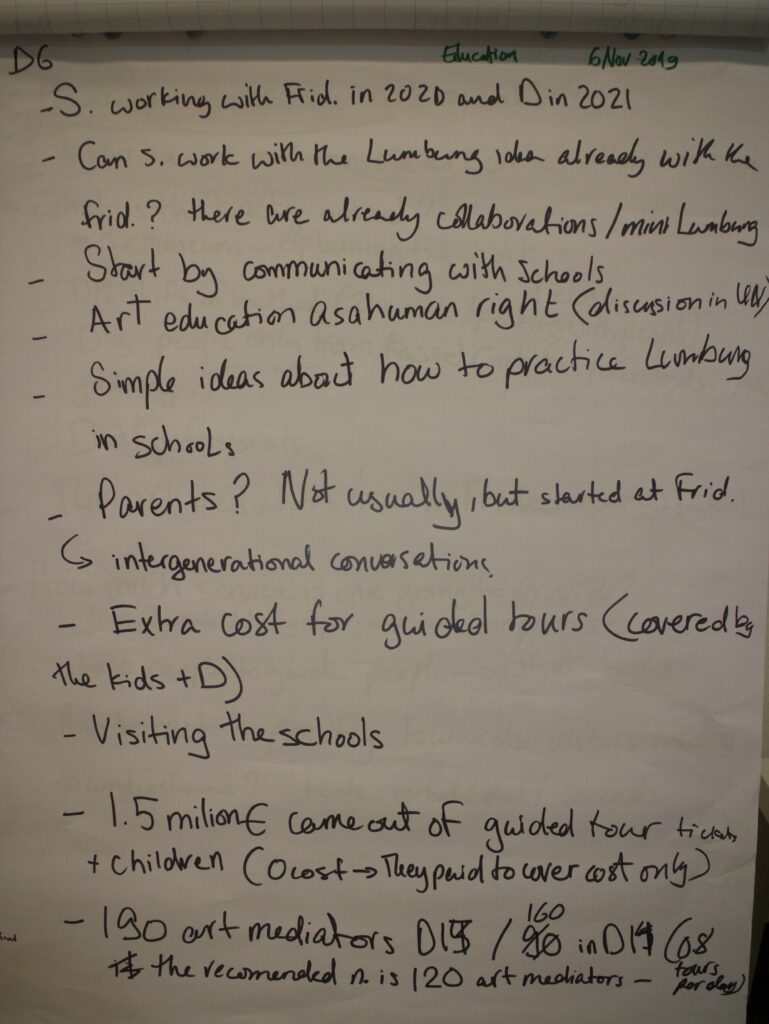 D6
Education 6 Nov 2019
- S. working with Frid. in 2020 and D in 2021
- Can S. work with the Lumbung idea already with the
frid.? there are already collaborations / mini Lumbung
- Start by communicating with schools
- Art education as a human right (discussion in UN)
- Simple ideas about how to practice Lumbung
in schools
- Parents? Not usually, but started at Frid.
↳ intergenerational conversations
- Extra cost for guided tours (covered by
the kids + D)
- Visiting the schools
- 1.5 milion € came out of guided tour tickets
+ children (0 cost → They paid to cover cost only)
160
- 190 art mediators / in D14 (08
the recomended n. is 120 art mediators - tours
per day)